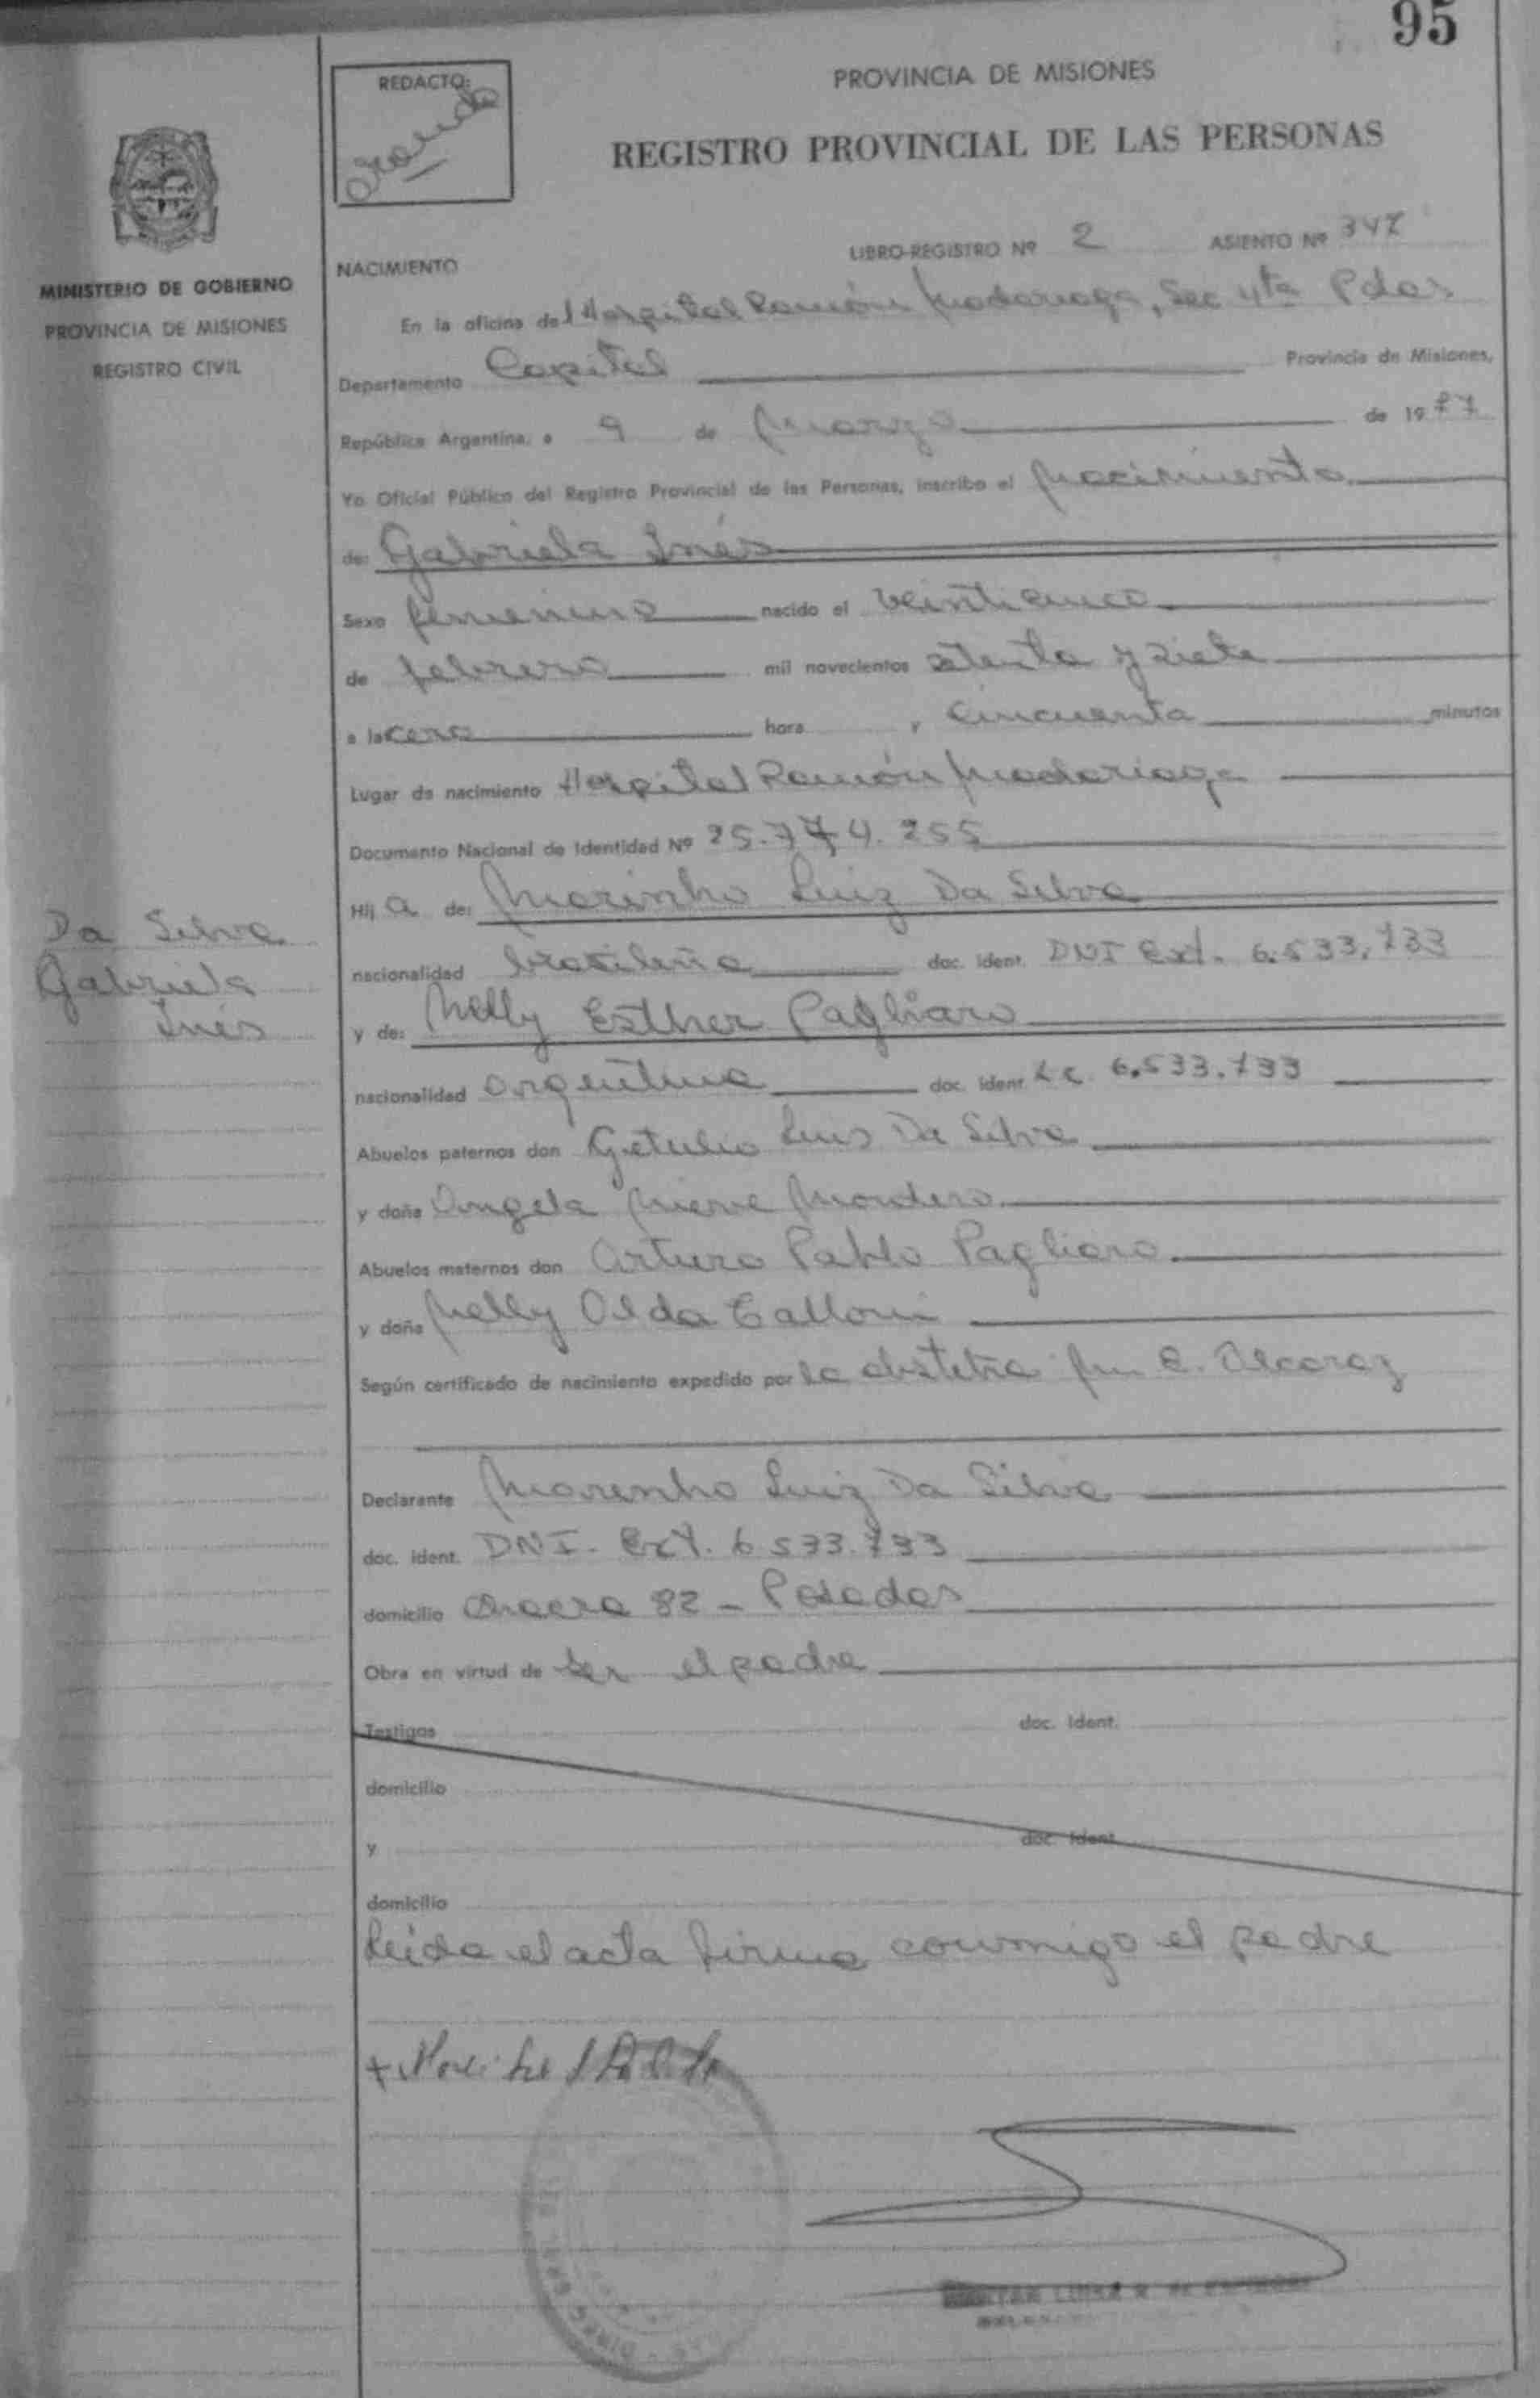 95
REDACTO:
PROVINCIA DE MISIONES
REGISTRO PROVINCIAL DE LAS PERSONAS
MINISTERIO DE GOBIERNO
PROVINCIA DE MISIONES
REGISTRO CIVIL
LIBRO-REGISTRO Nº 2 ASIENTO Nº 347
NACIMIENTO
En la oficina del Hospital Ramón Madariaga, Sec 4ta Pdas
Departamento Capital Provincia de Misiones,
República Argentina, a 9 de Marzo de 1977
Yo Oficial Público del Registro Provincial de las Personas, inscribo el Nacimiento
de: Gabriela Inés
Sexo femenino nacido el veinticinco
de febrero mil novecientos setenta y siete
a la cero hora, cincuenta minutos
Lugar de nacimiento Hospital Ramón Madariaga
Documento Nacional de Identidad Nº 25.774.255
Hij a de: Marinho Luiz Da Silva
nacionalidad brasileña doc. ident. DNI Ext. 6.533.733
y de: Nelly Esther Pagliaro
nacionalidad argentina doc. ident. L c. 6.533.733
Abuelos paternos don Getulio Luis Da Silva
y doña Angela
Abuelos maternos don Arturo Pablo Pagliaro
y doña Nelly Olda
Según certificado de nacimiento expedido por la obstetra E. Alcaraz
Declarante Marinho Luiz Da Silva
doc. ident. DNI. Ext. 6 533.733
domicilio Chacra 82 - Posadas
Obra en virtud de ser el padre
Testigos doc. ident.
domicilio
y doc. ident.
domicilio
Leida el acta firma conmigo el padre
Da Silva
Gabriela
Inés